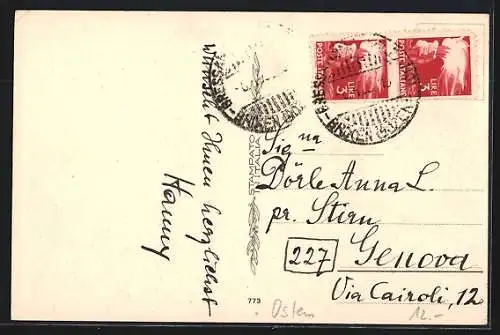 wünscht Ihnen herzlichst
Hanny
STAMPATO
D'ITALIA
773
POSTE ITALIANE
LIRE
3
POSTE ITALIANE
LIRE
3
Sig.na
Dörle Anna L.
pr. Stirn
227
Genova
Via Cairoli, 12
Ostern
12.-